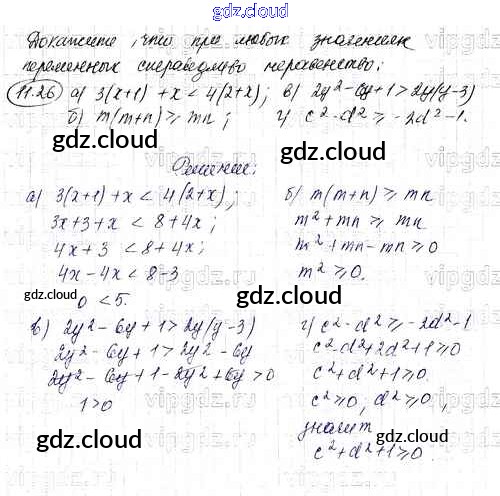 gdz.cloud
Докажите, что при любых значениях
переменных справедливо неравенство:
11.26 а) 3(x+1) + x < 4(2+x); в) 2y² - 6y + 1 > 2y(y-3)
б) m(m+n) ≥ mn; г) c² - d² ≥ -2d² - 1.
Решение:
а) 3(x+1) + x < 4(2+x);
3x + 3 + x < 8 + 4x;
4x + 3 < 8 + 4x;
4x - 4x < 8 - 3
0 < 5.
б) m(m+n) ≥ mn
m² + mn ≥ mn
m² + mn - mn ≥ 0
m² ≥ 0.
в) 2y² - 6y + 1 > 2y(y-3)
2y² - 6y + 1 > 2y² - 6y
2y² - 6y + 1 - 2y² + 6y > 0
1 > 0
г) c² - d² ≥ -2d² - 1
c² - d² + 2d² + 1 ≥ 0
c² + d² + 1 ≥ 0.
c² ≥ 0, d² ≥ 0.
значит
c² + d² + 1 ≥ 0.
gdz.cloud
gdz.cloud
gdz.cloud
gdz.cloud
gdz.cloud
gdz.cloud
gdz.cloud